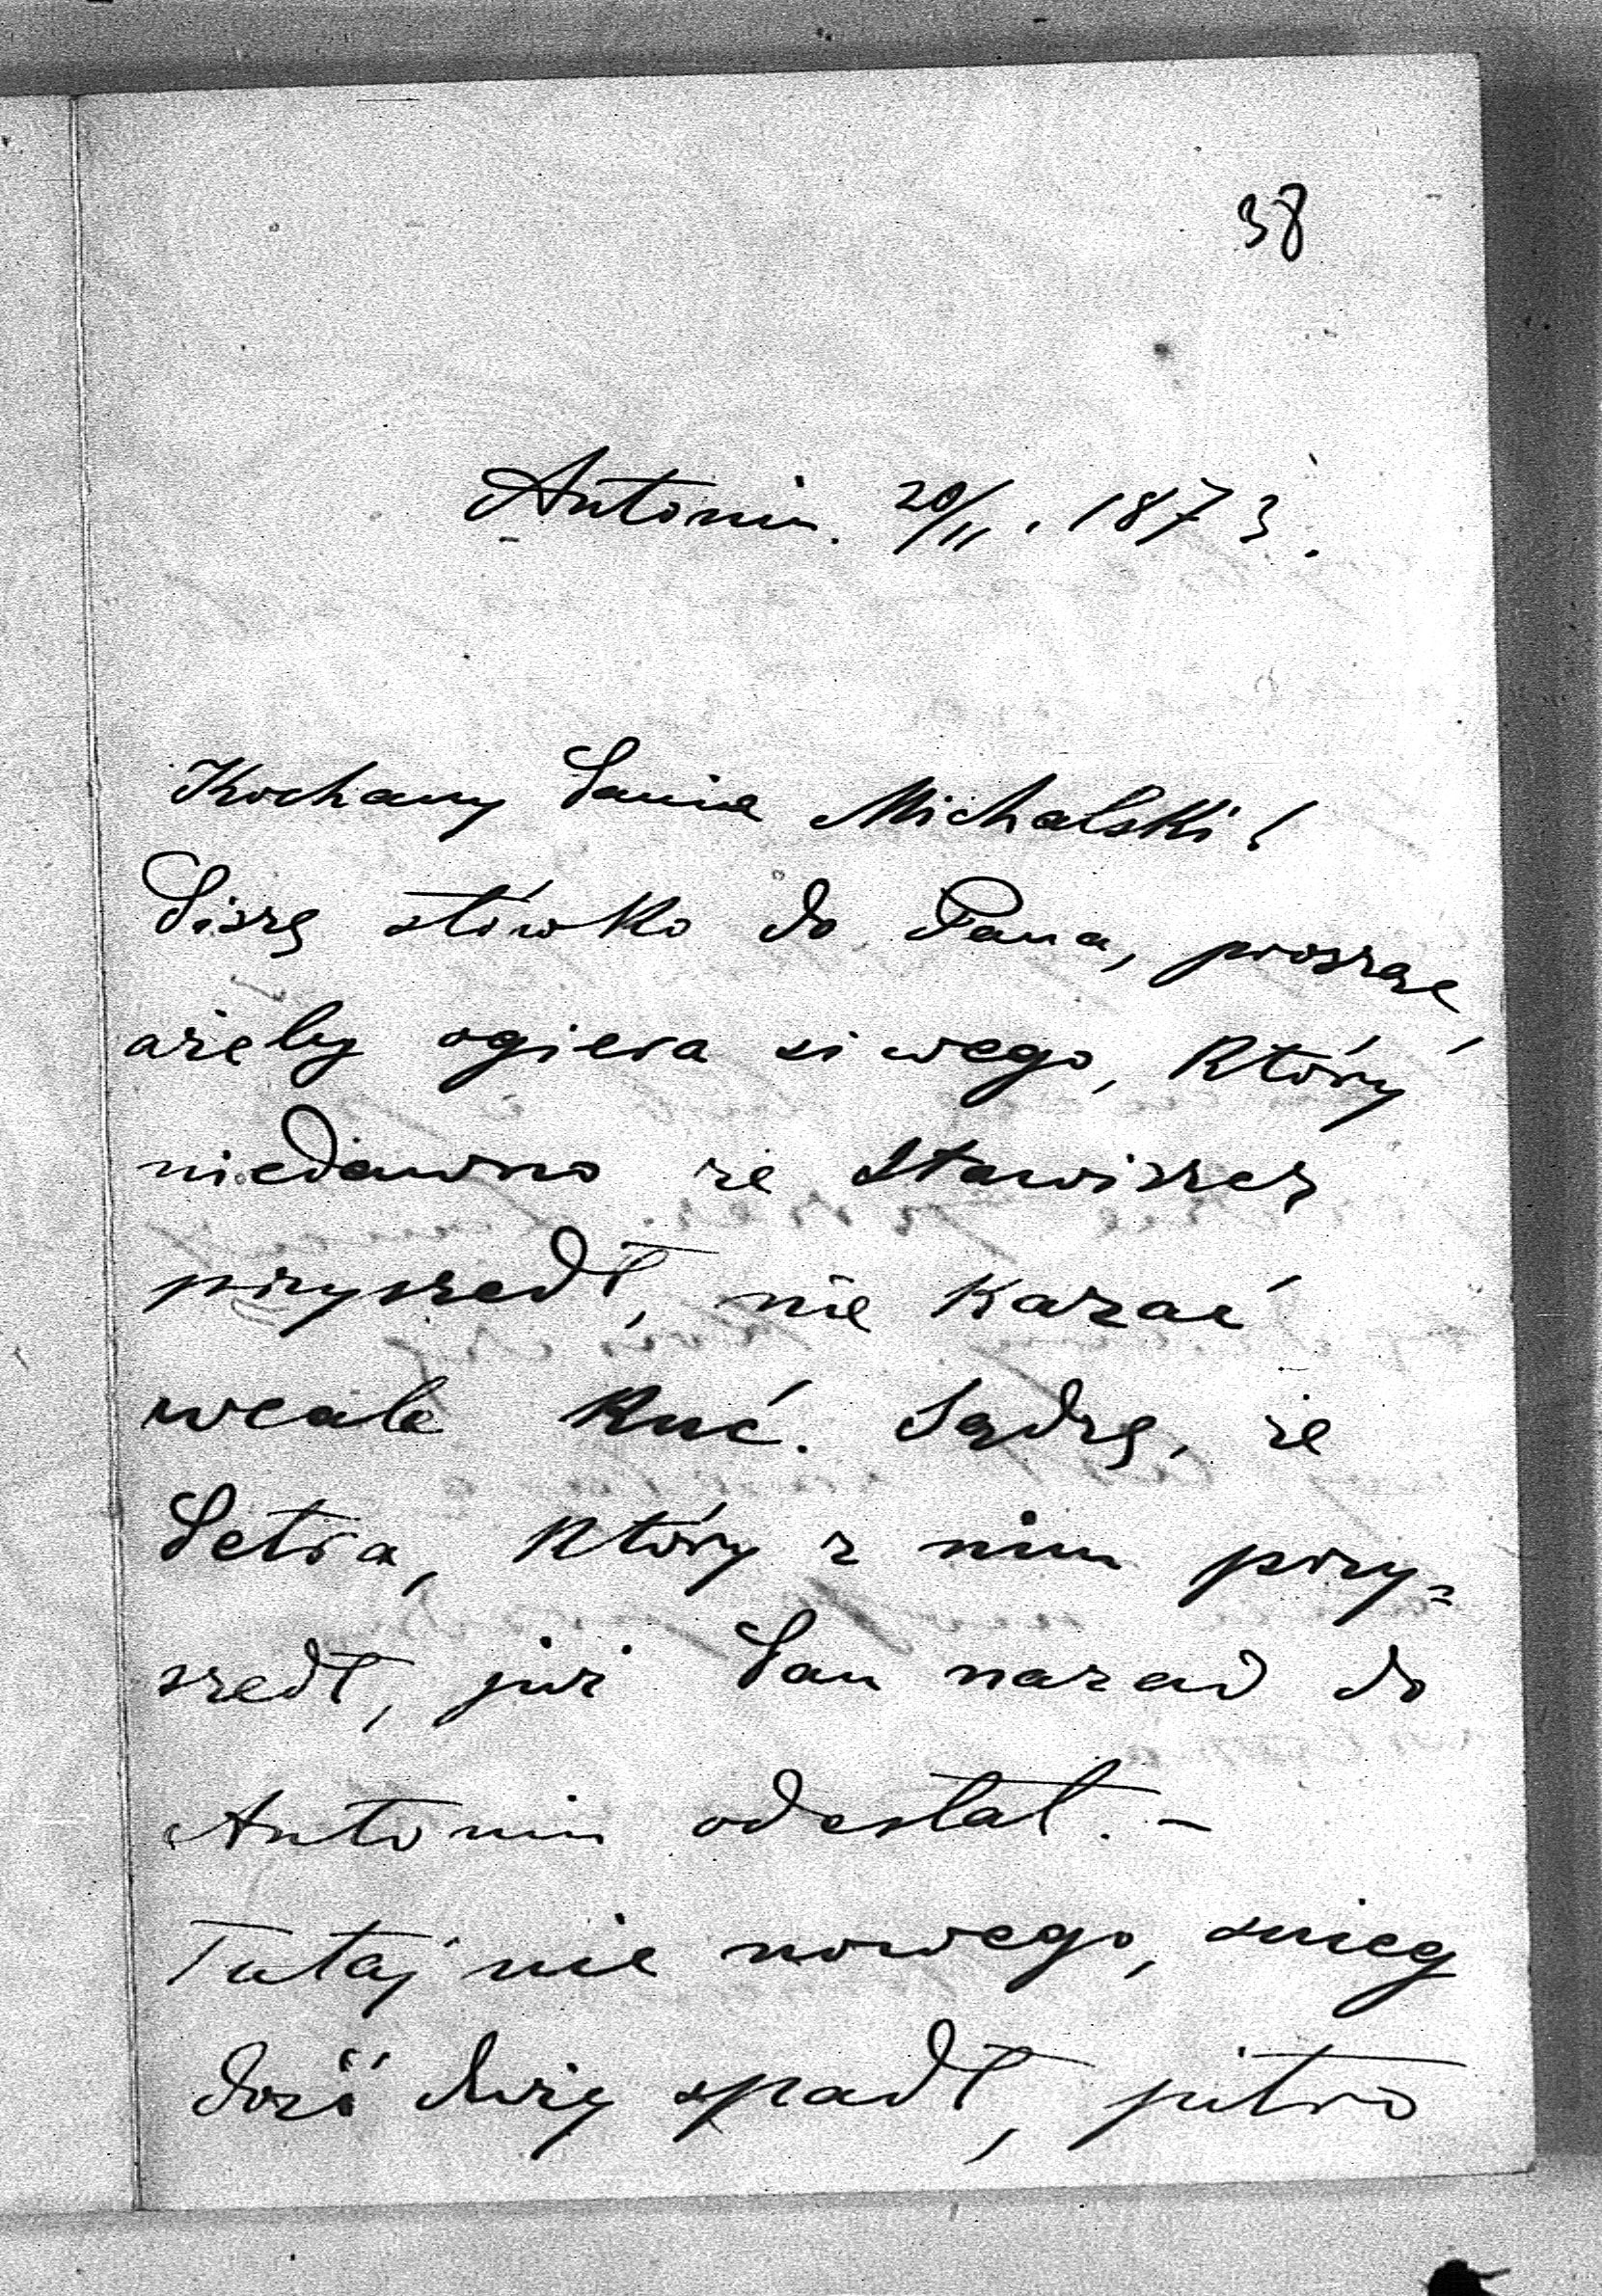 38
Antonin. 20/11. 1873.
Kochany Panie Michalski!
Piszę słówko do Pana, proszę,
ażeby ogiera siwego, który
niedawno ze Stawiszez
przyszedł, nie kazać
wcale kuć. Sądzę, że
Petra, który z nim przy=
szedł, już Pan nazad do
Antonin odesłał. –
Tutaj nic nowego, snieg
dość duży spadł, jutro